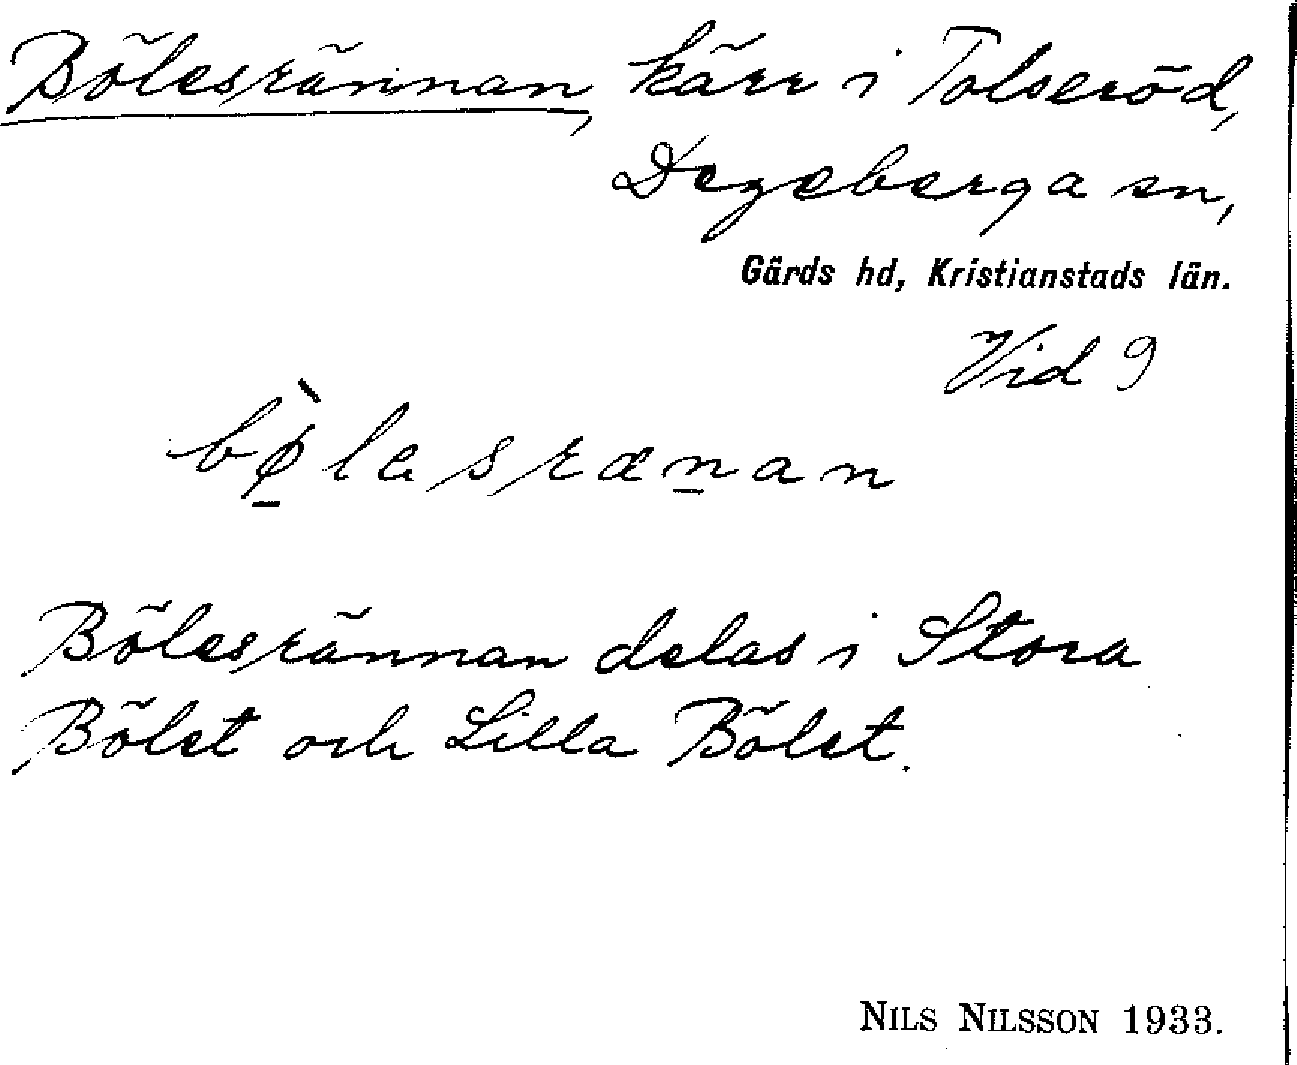 Bölesrännan, kärr i Tolseröd,
Degeberga sn,
Gärds hd, Kristianstads län.
Vid 9
bø̱̀lasræṉan
Bölesrännan delas i Stora
Bölet och Lilla Bölet.
NILS NILSSON 1933.